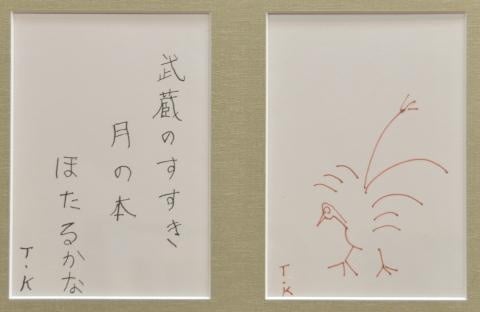 武蔵のすすき
月の本
ほたるかな
T.K
T.K